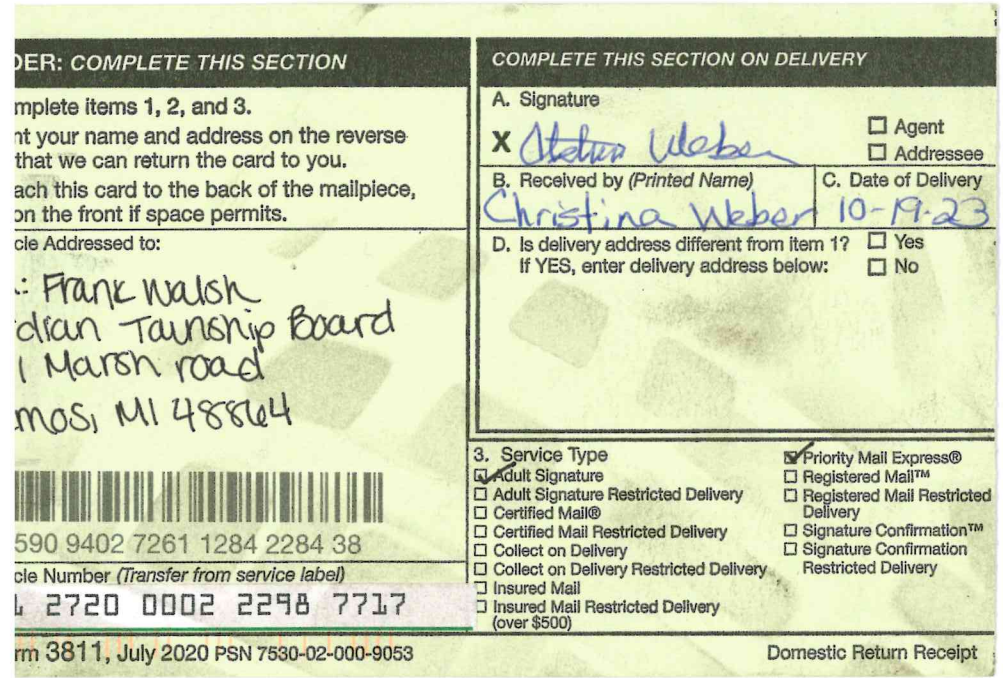 DER: COMPLETE THIS SECTION
mplete items 1, 2, and 3.
nt your name and address on the reverse
that we can return the card to you.
ach this card to the back of the mailpiece,
on the front if space permits.
cle Addressed to:
: Frank Walsh
dian Township Board
1 Marsh road
mos, MI 48864
590 9402 7261 1284 2284 38
cle Number (Transfer from service label)
2720 0002 2298 7717
rm 3811, July 2020 PSN 7530-02-000-9053
COMPLETE THIS SECTION ON DELIVERY
A. Signature
X Weber
☐ Agent
☐ Addressee
B. Received by (Printed Name)
Christina Weber
C. Date of Delivery
10-19-23
D. Is delivery address different from item 1? ☐ Yes
If YES, enter delivery address below: ☐ No
3. Service Type
☑ Adult Signature
☐ Adult Signature Restricted Delivery
☐ Certified Mail®
☐ Certified Mail Restricted Delivery
☐ Collect on Delivery
☐ Collect on Delivery Restricted Delivery
☐ Insured Mail
☐ Insured Mail Restricted Delivery
(over $500)
☑ Priority Mail Express®
☐ Registered Mail™
☐ Registered Mail Restricted
Delivery
☐ Signature Confirmation™
☐ Signature Confirmation
Restricted Delivery
Domestic Return Receipt